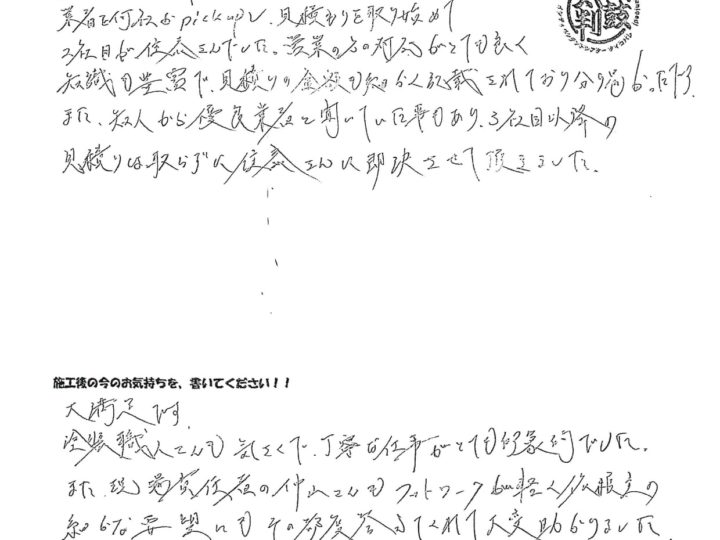 業者を何社かpick upし、見積もりを取り始めて
2社目が住泰さんでした。営業の方の対応がとても良く
知識も豊富で、見積りの金額も細かく記載されており分り易かったです。
また、知人から優良業者と聞いていた事もあり、3社目以降の
見積りは取らずに住泰さんに即決させて頂きました。
施工後の今のお気持ちを、書いてください！！
大満足です。
塗装職人さんも気さくで、丁寧な仕事がとても印象的でした。
また、現場責任者の仲山さんもフットワークが軽く、
細かな要望にもその都度答えてくれて大変助かりました。